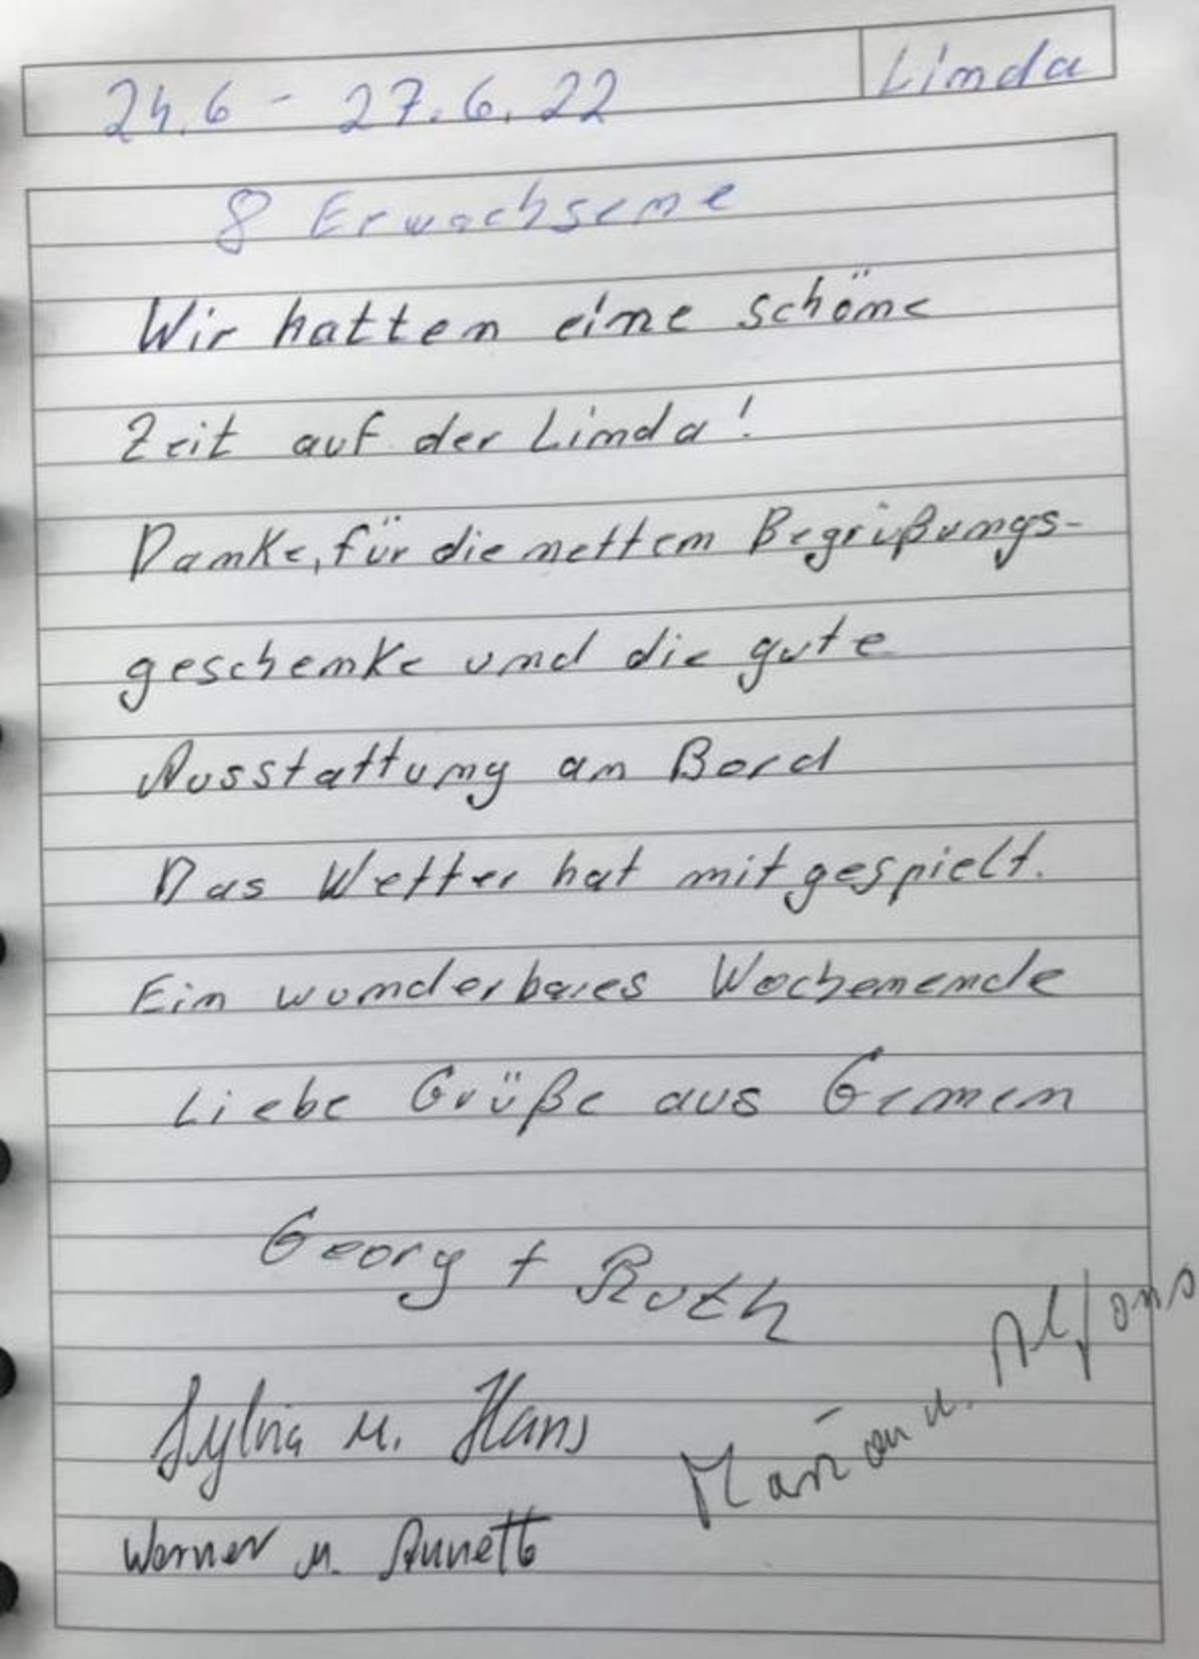 24.6 - 27.6.22 Linda
8 Erwachsene
Wir hatten eine schöne
Zeit auf der Linda!
Danke, für die netten Begrüßungs-
geschenke und die gute
Ausstattung an Bord
Das Wetter hat mitgespielt.
Ein wunderbares Wochenende
Liebe Grüße aus Gemen
Georg + Ruth
Sylvia u. Hans
Marian u. Alfons
Werner u. Annett